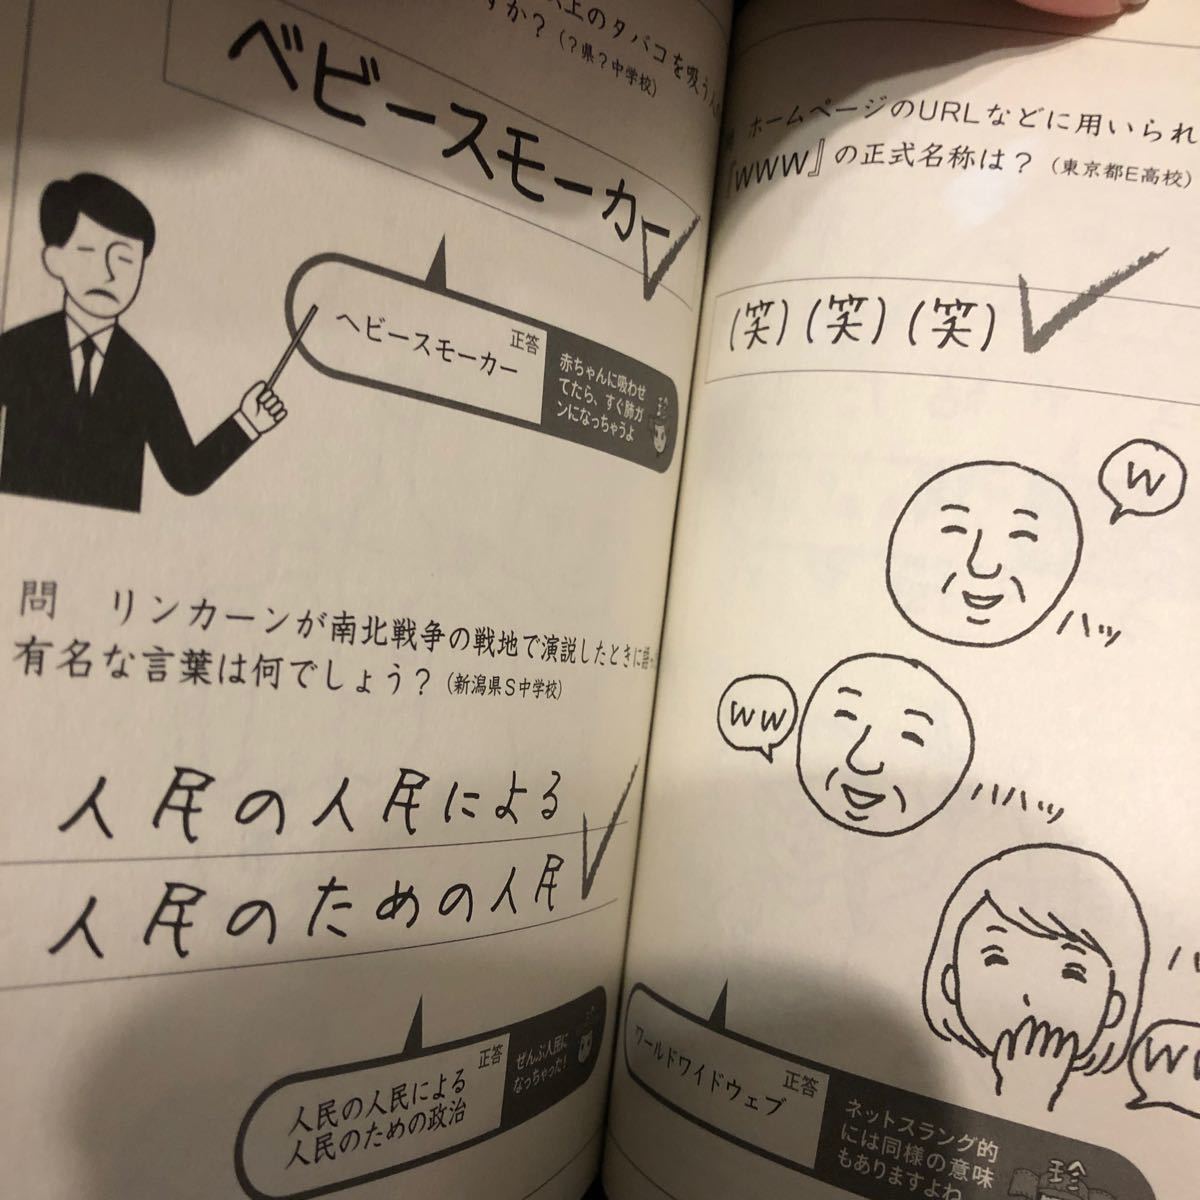 上のタバコを吸う人
すか？（？県？中学校）
ベビースモーカー
正答
ヘビースモーカー
赤ちゃんに吸わせ
てたら、すぐ肺ガ
ンになっちゃうよ
珍
問　リンカーンが南北戦争の戦地で演説したときに語っ
有名な言葉は何でしょう？（新潟県Ｓ中学校）
人民の人民による
人民のための人民
正答
人民の人民による
人民のための政治
ぜんぶ人民に
なっちゃった！
ホームページのURLなどに用いられ
『www』の正式名称は？（東京都E高校）
（笑）（笑）（笑）
w
ハッ
ww
ハハッ
ハ
ww
正答
ワールドワイドウェブ
ネットスラング的
には同様の意味
もありますよね
珍